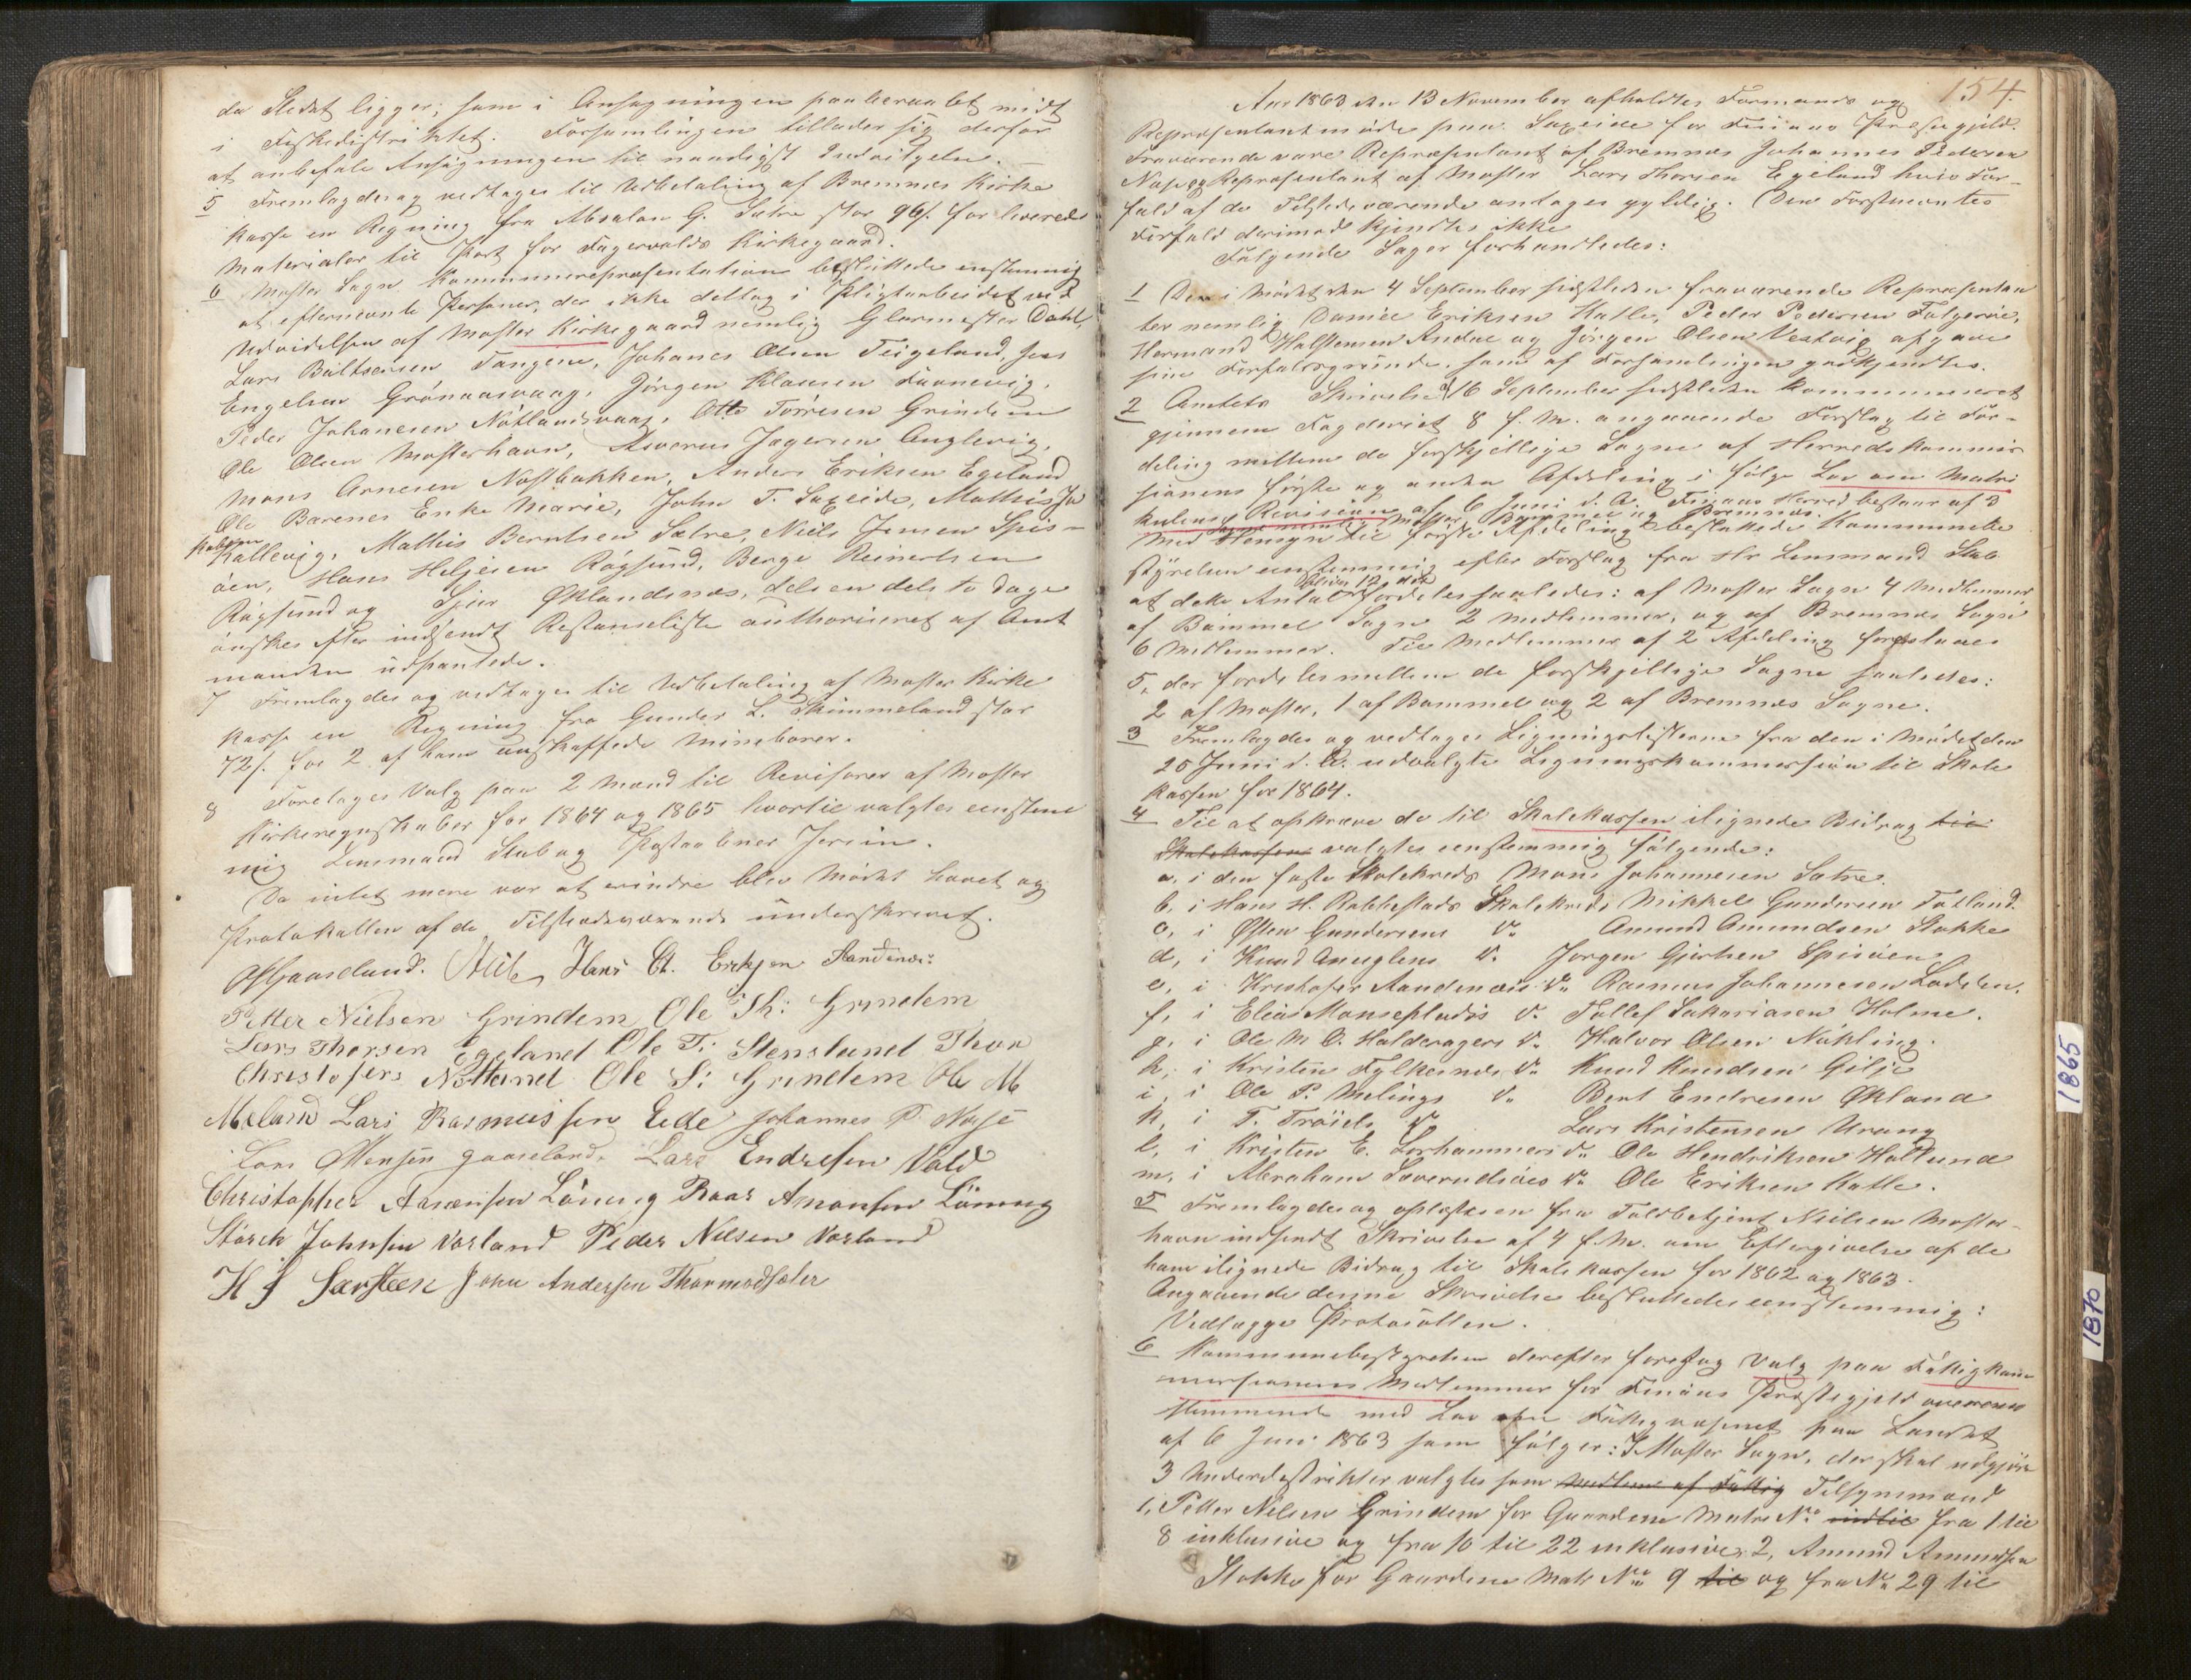 da Stedet ligger; som i Ansøgningen paaberaabt midt
i Fiskedistriktet. Forsamlingen tillader sig derfor
at anbefale Ansøgningen til naadigst Indvilgelse. —
5 Fremlagdes og vedtages til Udbetaling af Bremnes Kirke
kasse en Regning fra Absalon G. Sætre stor 96 s. for leverede
Materialer til Port for Fagervolds Kirkegaard.
6 Moster Sogns Kommunerepræsentation besluttede enstemmig
at efternævnte Personer, der ikke deltog i Pligtarbeidet ved
Udvidelsen af Moster Kirkegaard nemlig Glarmester Dahl,
Lars Baltsersen Tangene, Johanes Olsen Teigeland, Jens
Engelsen Grønaasvaag, Jørgen Klausen Faanevig,
Peder Johanesen Nøtlandsvaag, Otto Torresen Grindem
Ole Olsen Mosterhavn, Asverus Jagersen Anglevig,
Mons Arnesen Nøstbakken, Anders Eriksen Egeland
Ole Barenes Enke Marie, John T. Saxeide, Mathis Ja
kobsen
Kallevig, Mathis Berntsen Sætre, Niels Jensen Spis-
øen, Hans Heljesen Røgsund, Berge Reinertsen
Røgsund og Sjur Øklandsnæs, dels en dels to Dage
ønskes efter indsendt Restanceliste authoriseret af Amt
manden udpantede.
7 Fremlagdes og vedtages til Udbetaling af Moster Kirke
kasse en Regning fra Gunder L. Skimmeland stor
72 s. for 2 af ham anskaffede Mineborer.
8 Foretages Valg paa 2 Mand til Revisorer af Moster
Kirkeregnskaber for 1864 og 1865 hvortil valgtes eenstem
mig Lensmand Stub og Postaabner Jersin.
Da intet mere var at erindre blev Mødet hævet og
Protokollen af de Tilstedeværende underskrevet.
O Gaaseland. Stub Hans Ch. Erksen Aandanes
Petter Nielsen Grindem Ole Th: Grindem
Lars Thorsen Egeland Ole T: Stensland Thor
Christofers Nøtland Ole S: Grindem Ole M
Meland Lars Rasmussen Eide Johannes P. Nøse
Lars Monsen Gaaseland. Lars Endresen Vold
Christopher Aasensen Lönning Roar Amonsen Lönning
Störck Johnsen Vorland Peder Nilsen Vorland
H J Særsteen John Andersen Thormodsæter
154.
Aar 1863 den 13 November afholdtes Formands og
Repræsentantmøde paa Saxeide for Finaas Præstegjeld.
Fraværende vare Repræsentant af Bremnes Johannes Pedersen
Nøse og Repræsentant af Moster Lars Thorsen Egeland hvis For-
fald af de Tilstedeværende antages gyldig. Den Førstnævntes
Forfald derimod kjendtes ikke
Følgende Sager forhandledes:
1 De i Mødet den 4 September sidstleden fraværende Repræsentan
ter nemlig Daniel Eriksen Katle, Peder Pedersen Folgerøe,
Hermand Halstensen Andal og Jørgen Olsen Vestvig afgave
sine Forfaldsgrunde, som af Forsamlingen godkjendtes.
2 Amtets Skrivelse af 16 September sidstleden kommuniceret
gjennem Fogderiet 8 f. M. angaaende Forslag til For-
deling mellem de forskjellige Sogne af Herredskommis
sionens første og anden Afdeling i Følge Lov om Matri
kulens Revision af 6 Juni d. A. Finaas Herred bestaar af 3
Sogne nemlig: Moster, Bømmel og Bremnes.
Med Hensyn til første Afdeling besluttede Kommunebe
styrelsen eenstemmig efter Forslag fra Hr Lensmand Stub
at dette Antal bliver 12 der fordeles saaledes: af Moster Sogn 4 Medlemmer
af Bømmel Sogn 2 Medlemmer, og af Bremnes Sogn
6 Medlemmer. Til Medlemmer af 2 Afdeling foreslaaes
5, der fordeles mellem de forskjellige Sogne saaledes:
2 af Moster, 1 af Bømmel og 2 af Bremnes Sogne.
3 Fremlagdes og vedtages Ligningslisterne fra den i Mødet den
25 Juni d. A. udvalgte Ligningskommission til Skole
kassen for 1864.
4 Til at opkræve de til Skolekassen ilignede Bidrag til
Skolekassen valgtes eenstemmig følgende:
a, i den faste Skolekreds Mons Johannesen Sætre.
b, i Hans H. Rabbestads Skolekreds Mikkel Gundersen Totland.
c, i Østen Gundersens do Amund Amundsen Stokke
d, i Knud Aneglens do Jørgen Gjerhsen Spisøen
e, i Kristofer Aandenæs do Rasmus Johannesen Lodelen.
f, i Elias Monsepladss do Tollef Sakariasen Holme.
g, i Ole M O. Halderagers do Halvor Olsen Nøkling.
h, i Kristen Fylkesnes do Knud Knudsen Gilje
i, i Ole P. Melings do Bent Endresen Økland
k, i T. Trøiels do Lars Kristensen Urang
l, i Kristen E. Lorhammers do Ole Hendriksen Hallund
m, i Abraham Siverudsøes do Ole Eriksen Katle.
5 Fremlagdes og oplæstes en fra Toldbetjent Nielsen Moster-
havn indsendt Skrivelse af 4 f. M. om Eftergivelse af de
ham ilignede Bidrag til Skolekassen for 1862 og 1863.
Angaaende denne Skrivelse besluttedes eenstemmig:
Vedlægges Protocollen.
6 Kommunebestyrelsen derefter foretog Valg paa Fattigkom
missionens Medlemmer for Finaas Præstegjeld overens
stemmende med Lov om Fattigvæsenet paa Landet
af 6 Juni 1863 som følger: I Moster Sogn, der skal udgjøre
3 Underdistrikter valgtes som Medlem af Fattig Tilsynsmænd
1, Petter Nilsen Grindem for Gaardene Matr No indtil fra 1 til
8 inklusive og fra 10 til 22 inklusive, 2, Amund Amundsen
Stokke for Gaardene Matr No 9 til og fra No 29 til
1865
1870